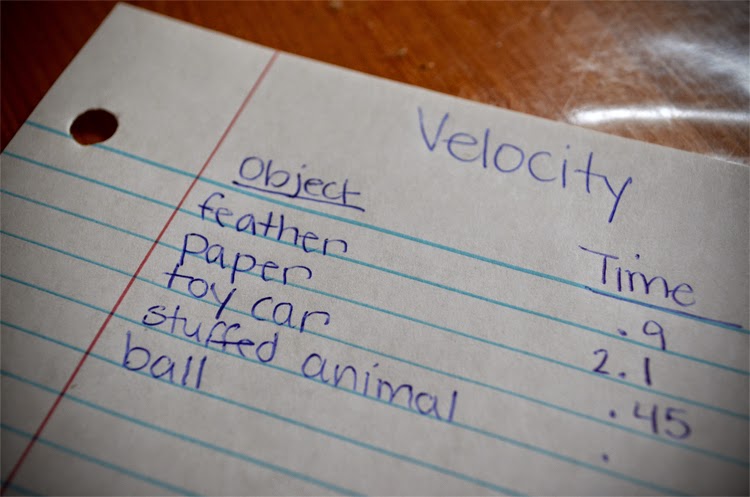 Velocity
Object Time
feather .9
paper 2.1
toy car .45
stuffed animal .
ball